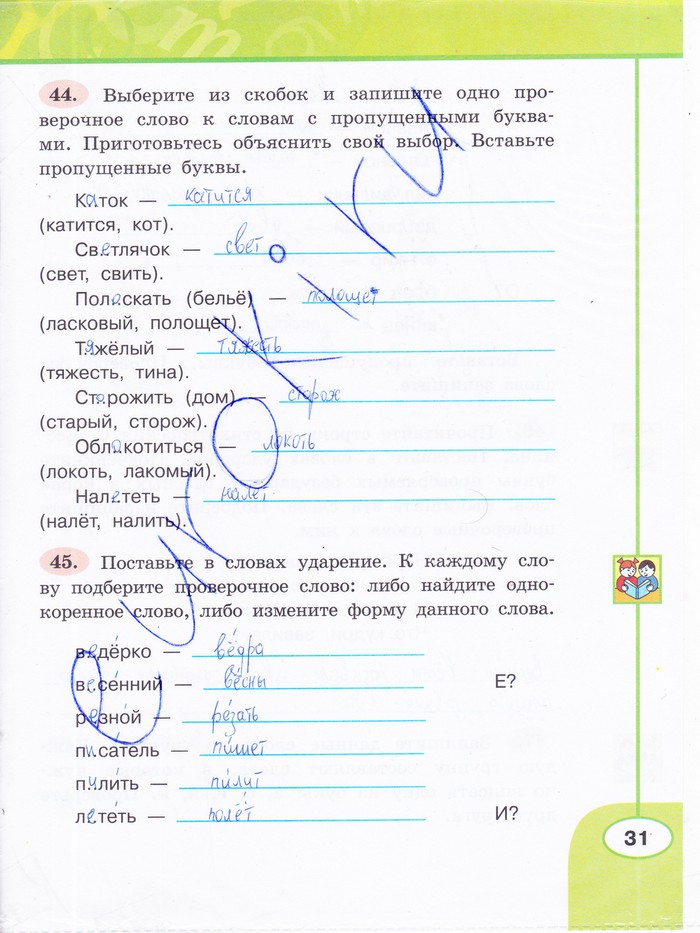 44. Выберите из скобок и запишите одно про-
верочное слово к словам с пропущенными буква-
ми. Приготовьтесь объяснить свой выбор. Вставьте
пропущенные буквы.
Каток — катится
(катится, кот).
Светлячок — свет
(свет, свить).
Полоскать (бельё) — полощет
(ласковый, полощет).
Тяжёлый — тяжесть
(тяжесть, тина).
Сторожить (дом) — сторож
(старый, сторож).
Облокотиться — локоть
(локоть, лакомый).
Налететь — налёт
(налёт, налить).
45. Поставьте в словах ударение. К каждому сло-
ву подберите проверочное слово: либо найдите одно-
коренное слово, либо измените форму данного слова.
ведёрко — вёдра
весе́нний — вёсны Е?
резно́й — ре́зать
писа́тель — пи́шет
пили́ть — пи́лит
лете́ть — полёт И?
31
еуроки.ру